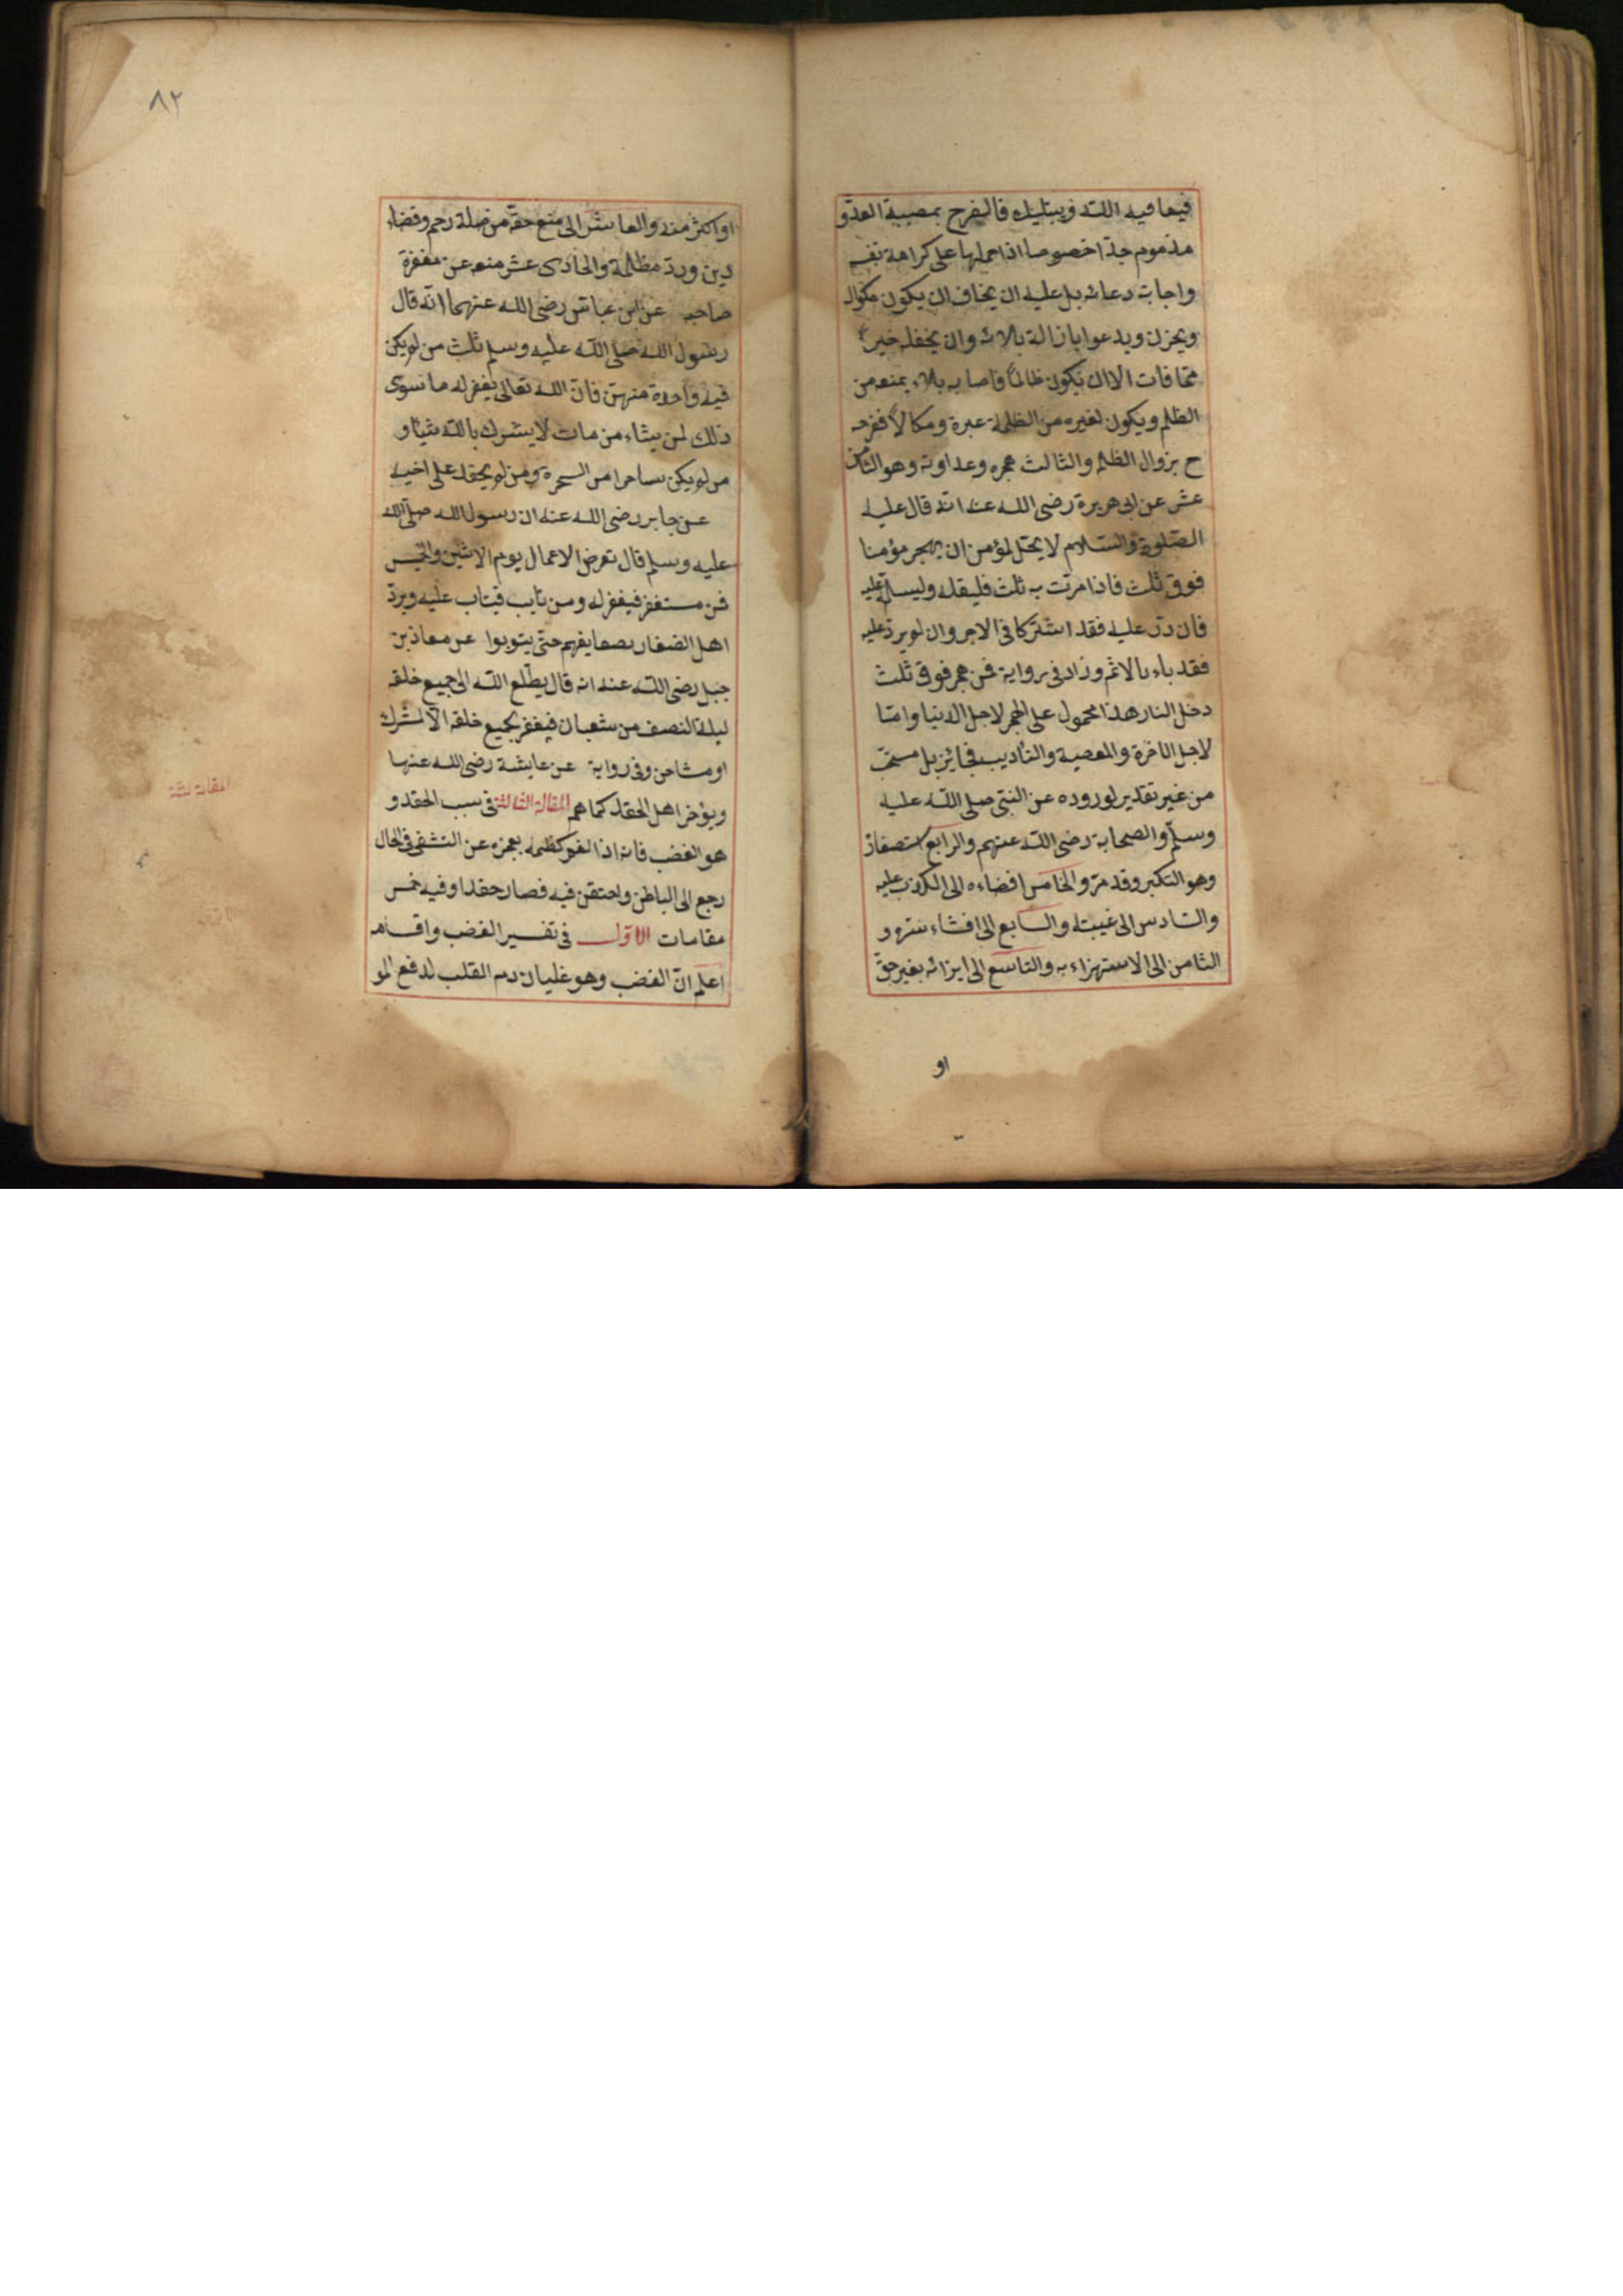 فيعافيه الله ويبتليك فالفرح بمصيبة العدو
مذموم جدا خصوصا اذا حملها على كرامة نفسه
واجابة دعائه بل عليه ان يخاف ان يكون مكرا له
ويحزن ويدعوا بازالة بلائه وان يخلفله خيرا
مما فات الا ان يكون ظالما فاصابه بلاء يمنعه من
الظلم ويكون لغيره من الظلمة عبرة ومكالا ففرحه
ح بزوال الظلم والثالث هجره وعداوته وهو الثامن
عشر عن ابى هريرة رضى الله عنه انه قال عليه
الصلوة والسلام لا يحل لمؤمن ان يهجر مؤمنا
فوق ثلث فاذا مرت به ثلث فليقله وليسلم عليه
فان رد عليه فقد اشتركا فى الاجر وان لم يرد عليه
فقد باء بالاثم وزاد فى رواية فمن هجر فوق ثلث
دخل النار هذا محمول على الهجر لاجل الدنيا واما
لاجل الاخرة والمعصية والتأديب فجائز بل مستحب
من غير تقدير لوروده عن النبى صلى الله عليه
وسلم والصحابة رضى الله عنهم والرابع استصغاره
وهو التكبر وقد مر والخامس افضاءه الى الكذب عليه
والسادس الى غيبته والسابع الى افشاء سره و
الثامن الى الاستهزاء به والتاسع الى ايذائه بغير حق
او
٨٢
او اكثر منه والعاشر الى منع حقه من صلة رحم وقضاء
دين ورد مظلمة والحادى عشر منعه عن مغفرة
صاحبه عن ابن عباس رضى الله عنهما انه قال
رسول الله صلى الله عليه وسلم ثلث من لم يكن
فيه واحدة منهن فان الله تعالى يغفر له ما سوى
ذلك لمن يشاء من مات لا يشرك بالله شيئا و
من لم يكن ساحرا من السحرة ومن لم يحقد على اخيه
عن جابر رضى الله عنه ان رسول الله صلى الله
عليه وسلم قال تعرض الاعمال يوم الاثنين والخميس
فمن مستغفر فيغفر له ومن تايب فيتاب عليه ويرد
اهل الضغار بضغايفهم حتى يتوبوا عن معاذ بن
جبل رضى الله عنه انه قال يطلع الله الى جميع خلقه
ليلة النصف من شعبان فيغفر لجميع خلقه الا لمشرك
او مشاحن وفى رواية عن عايشة رضى الله عنها
ويؤخر اهل الحقد كما هم المقالة الثالثة فى سبب الحقد و
هو الغضب فانه اذا لم يكظمه بعجزه عن التشفى فى الحال
رجع الى الباطن واحتقن فيه فصار حقدا وفيه خمس
مقامات الاول فى تفسير الغضب واقسامه
اعلم ان الغضب وهو غليان دم القلب لدفع المو